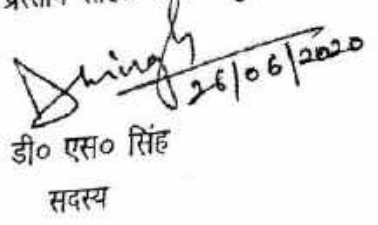 DSingh
26/06/2020
डी० एस० सिंह
सदस्य